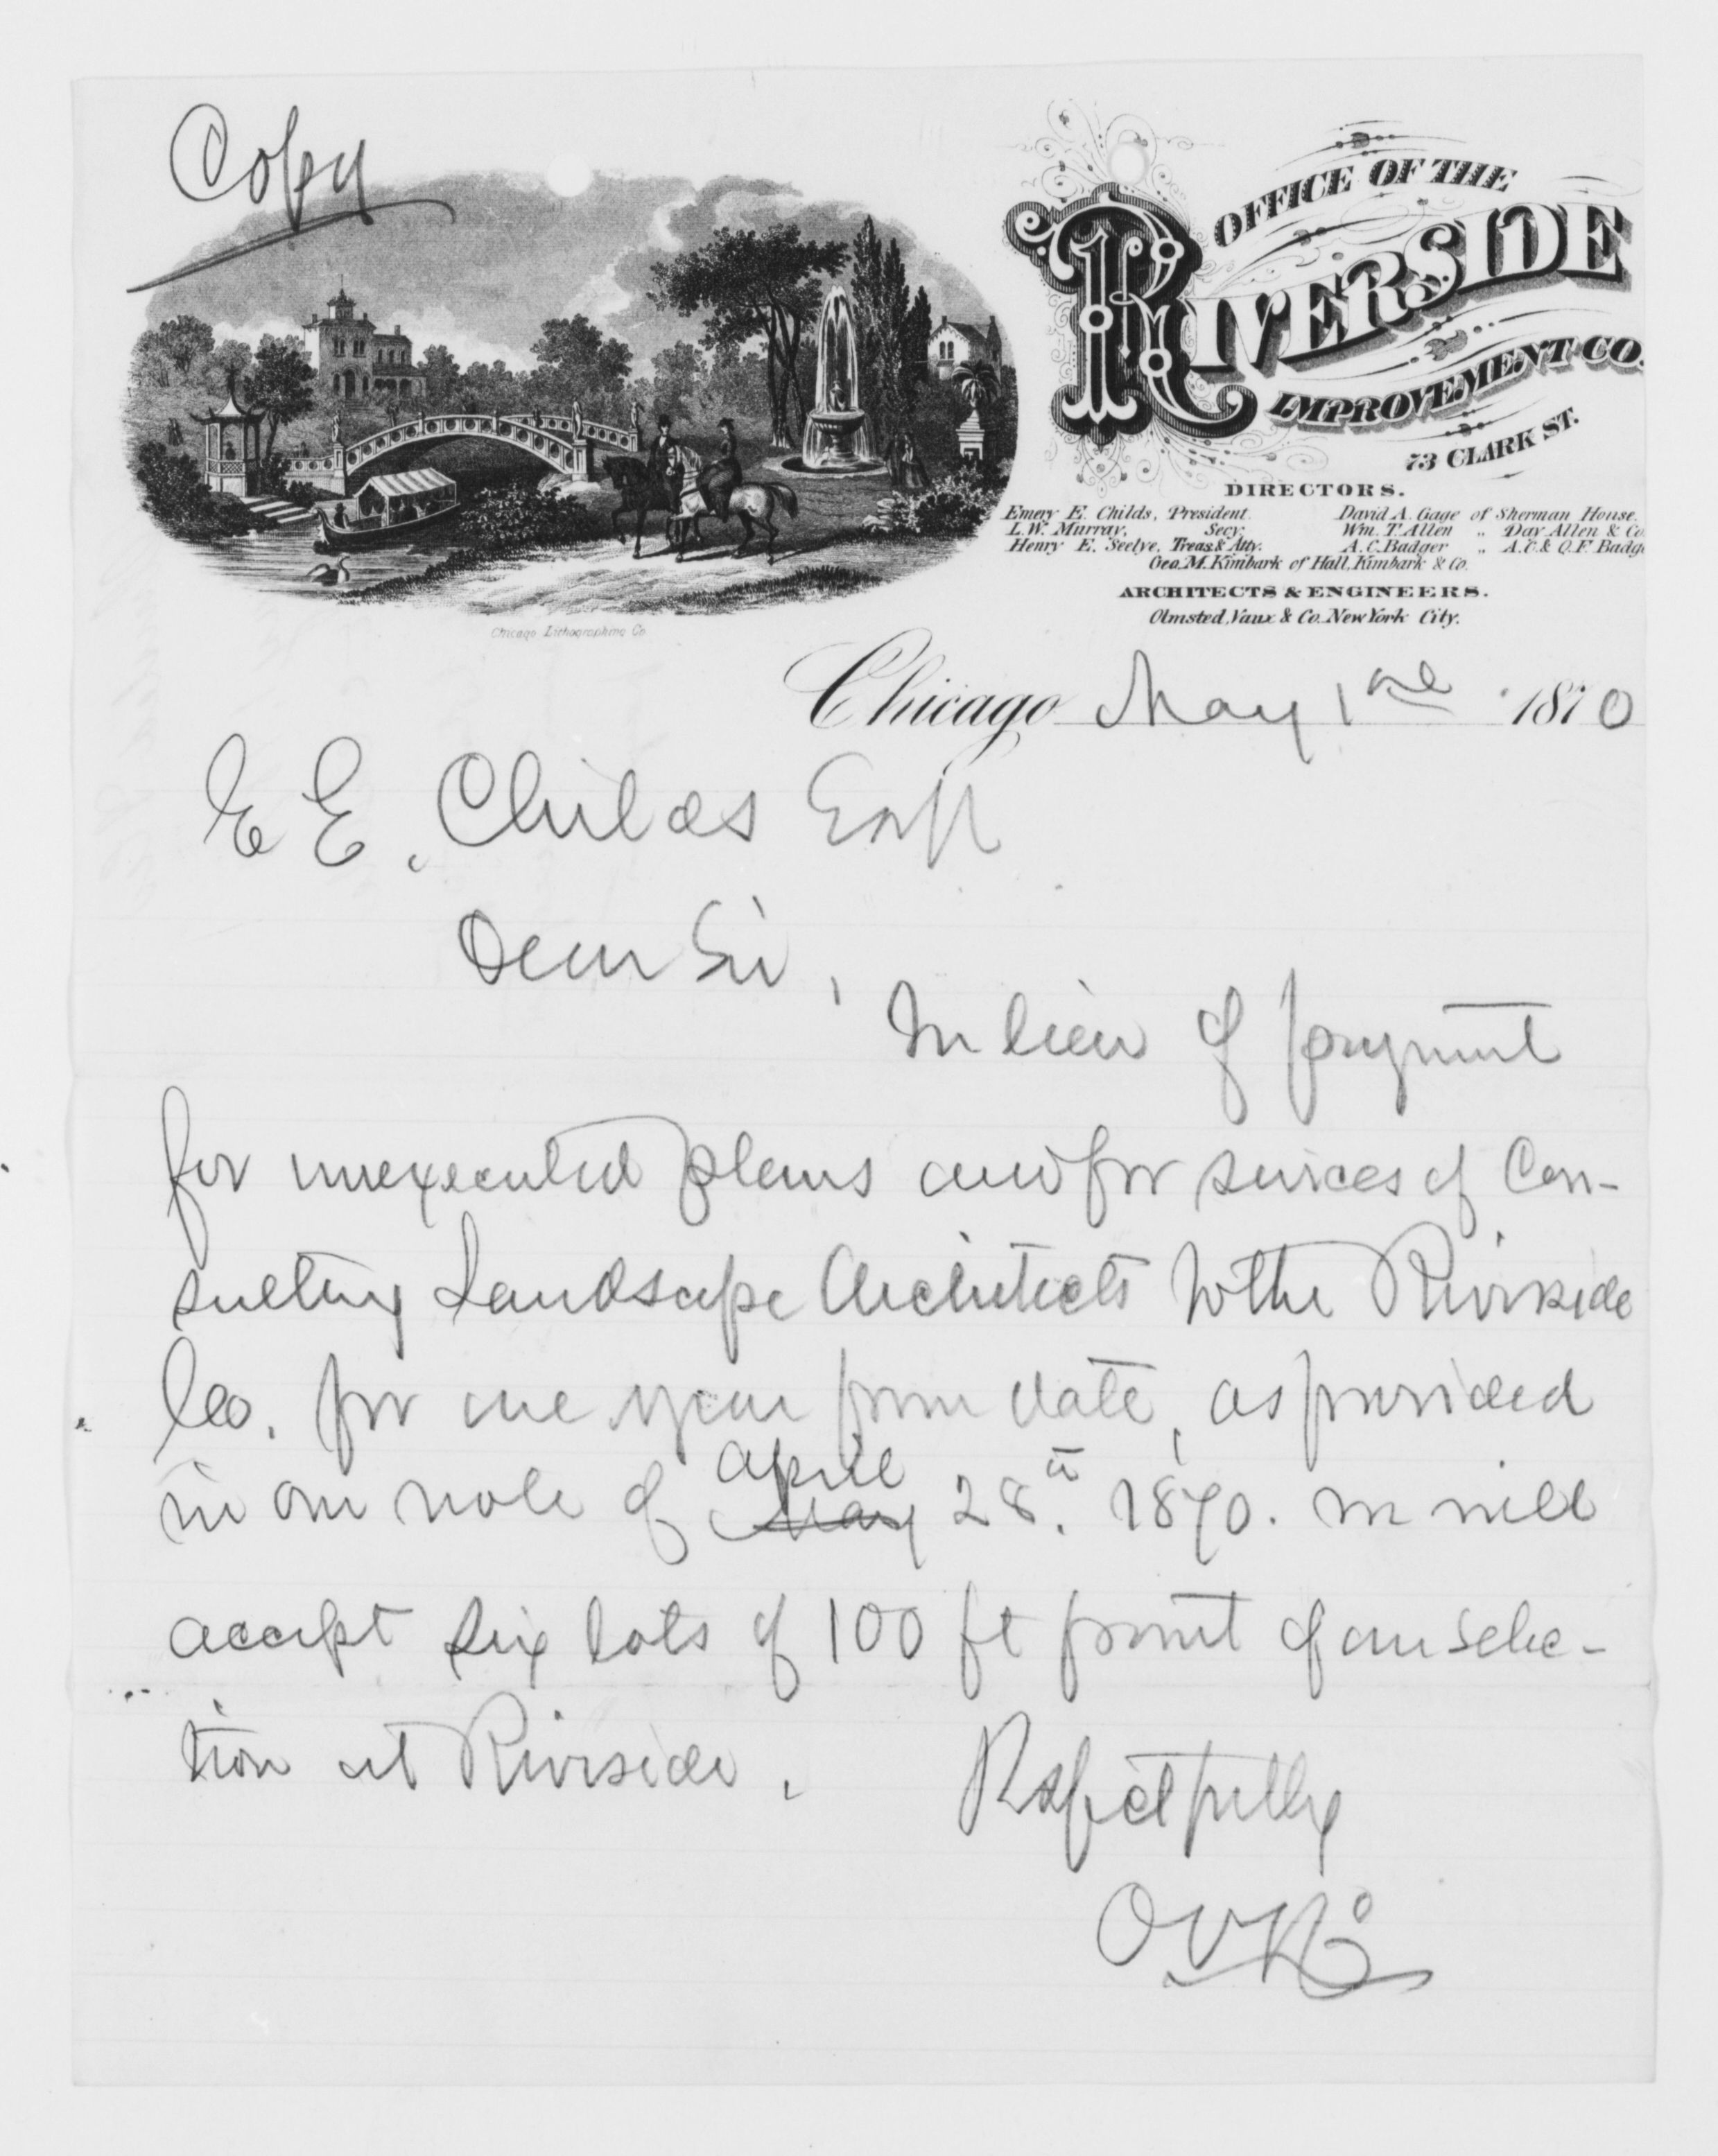 Copy
OFFICE OF THE
RIVERSIDE
IMPROVEMENT CO.
73 CLARK ST.
DIRECTORS.
Emery E. Childs, President. David A. Gage of Sherman House.
L.W. Murray, Secy. Wm. T. Allen " Day Allen & Co
Henry E. Seelye, Treas. & Atty. A. C. Badger " A. C. & O. F. Badge
Geo. M. Kimbark of Hall, Kimbark & Co.
ARCHITECTS & ENGINEERS.
Olmsted, Vaux & Co. New York City.
Chicago Lithographing Co.
Chicago May 1 1870
E E. Childs Esqr
Dear Sir,
In lieu of payment
for unexecuted plans and for services of Con-
sulting Landscape Architects to the Riverside
Co. for one year from date, as provided
in our note of May April 28th. 1870. we will
accept six lots of 100 ft front of our selec-
tion at Riverside.
Respectfully
O V & Co